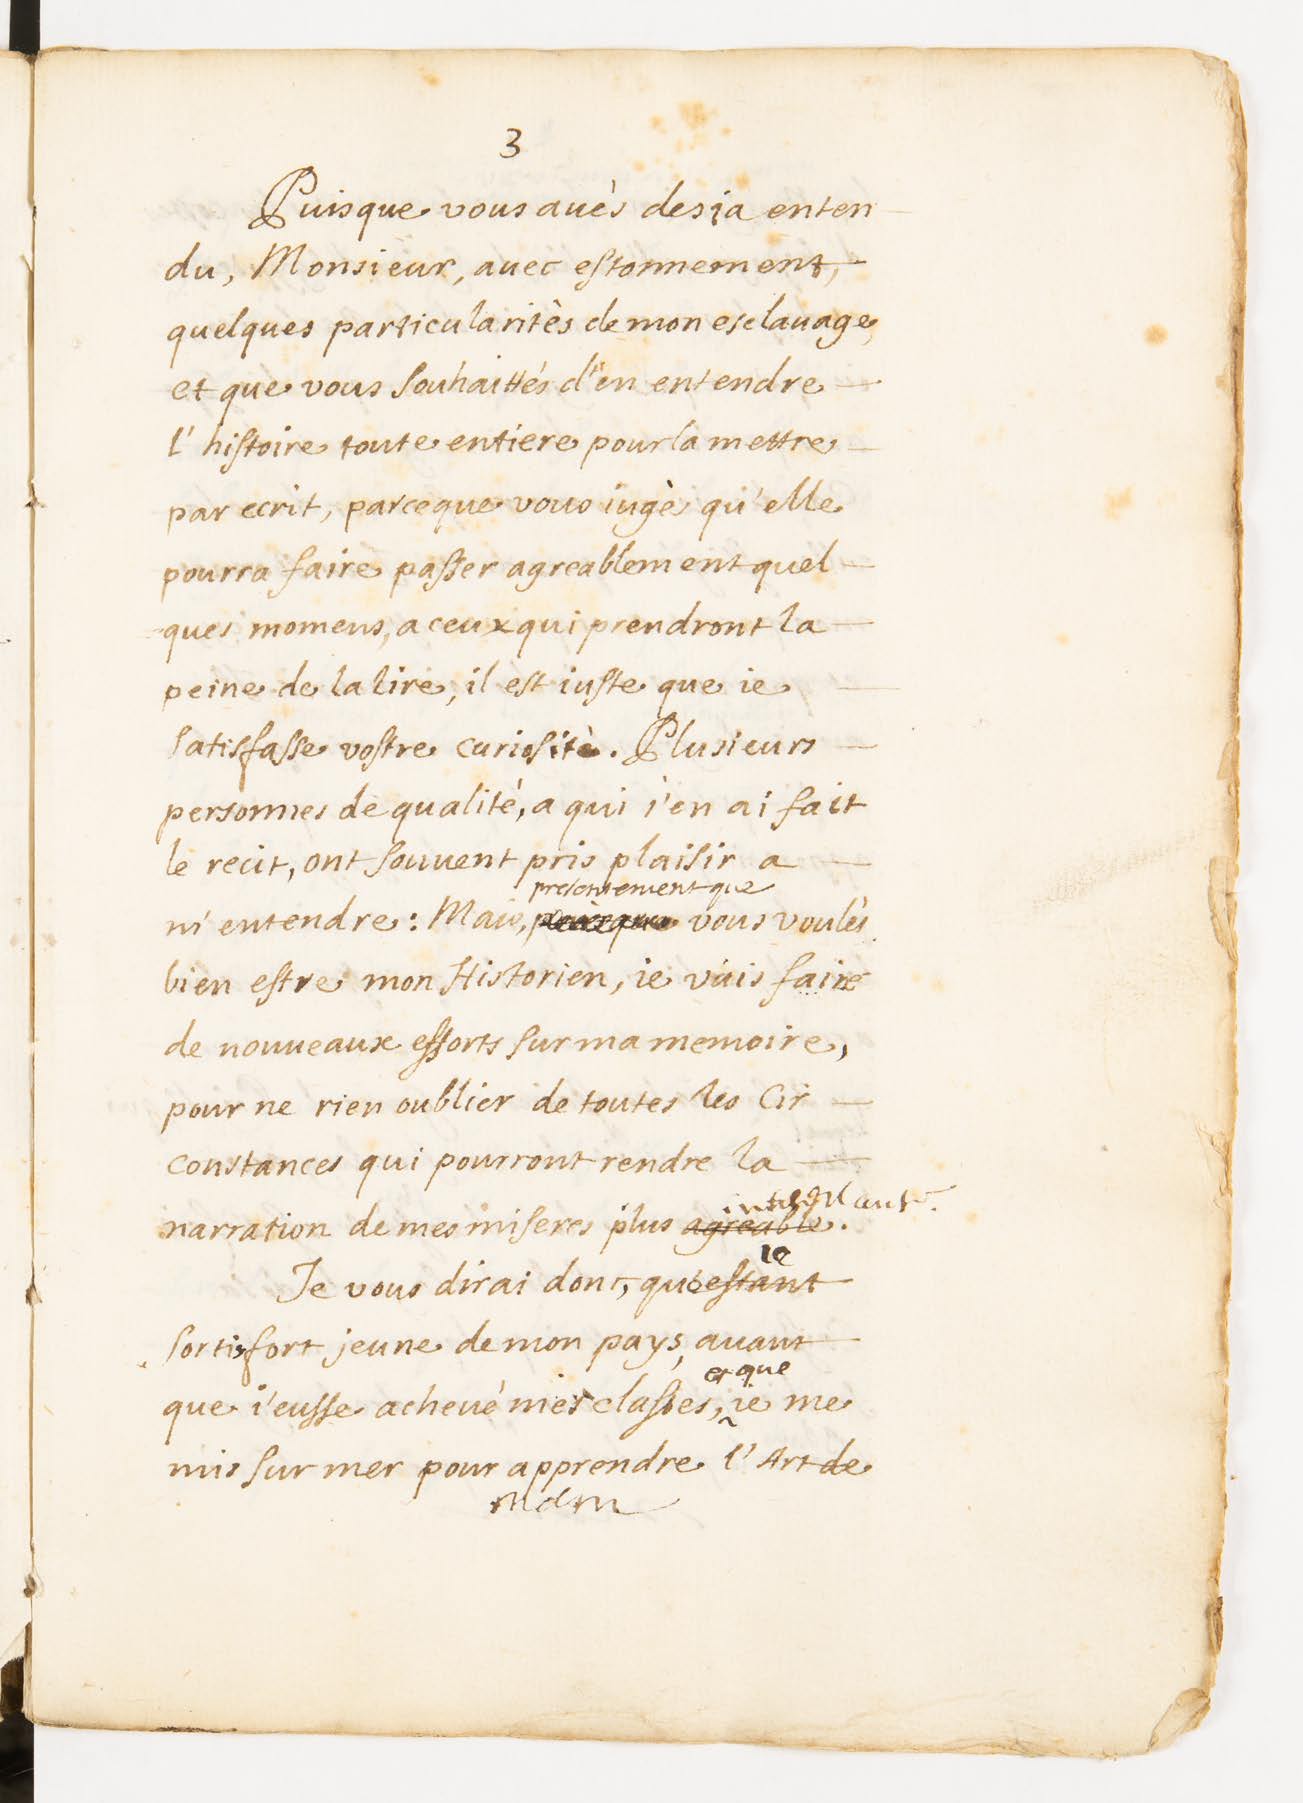 3
Puisque vous aués desia enten
du, Monsieur, auec estonnement,
quelques particularités de mon esclauage,
et que vous souhaittés d'en entendre
l'histoire toute entiere pour la mettre
par ecrit, parceque vous iugés qu'elle
pourra faire passer agreablement quel
ques momens, a ceux qui prendront la
peine de la lire, il est iuste que ie
satisfasse vostre curiosité. Plusieurs
personnes de qualité, a qui i'en ai fait
le recit, ont souuent pris plaisir a
presentement que
m'entendre: Mais, vous voulés
bien estre mon Historien, ie vais faire
de nouueaux efforts sur ma memoire,
pour ne rien oublier de toutes les Cir
constances qui pourront rendre la
narration de mes miseres plus agreable.
ie
Je vous dirai donc, qu'estant
sortis fort jeune de mon pays, auant
et que
que i'eusse acheué mes classes, ie me
mis sur mer pour apprendre l'Art de